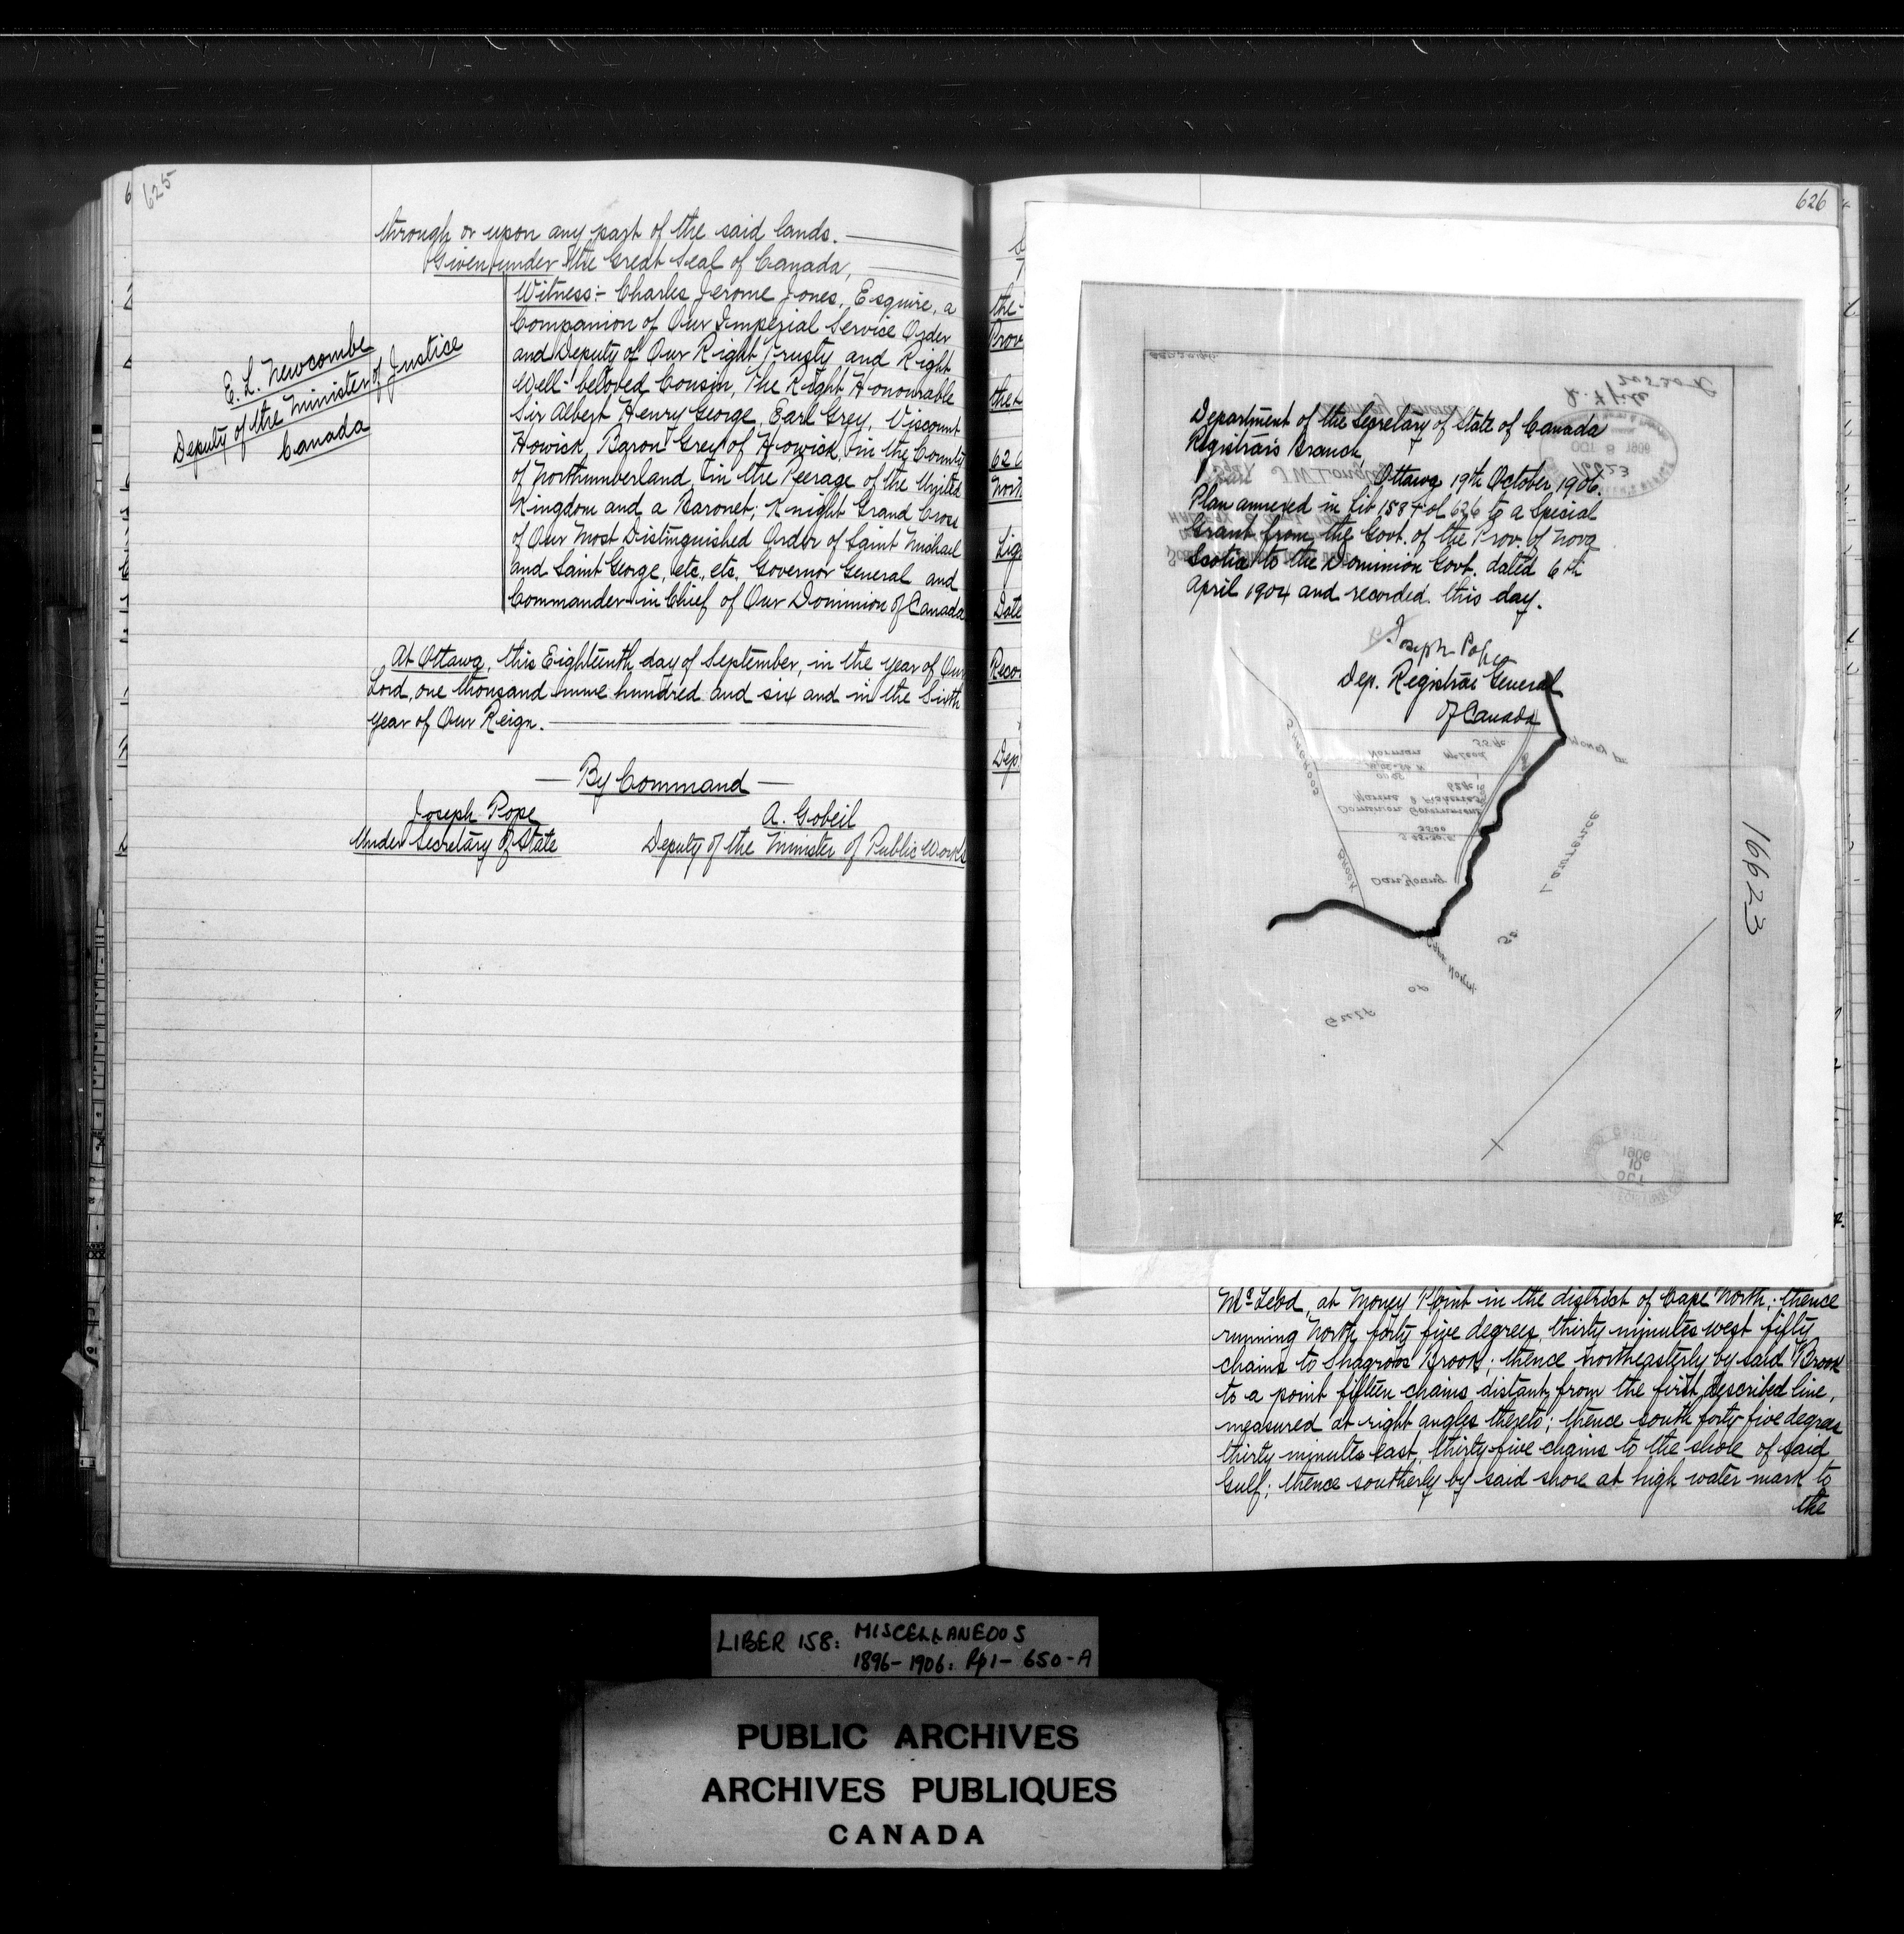 625
through or upon any part of the said lands.
Given under the Great Seal of Canada,
Witness:- Charles Jerome Jones, Esquire, a
Companion of Our Imperial Service Order
and Deputy of Our Right Trusty and Right
Well-beloved Cousin, The Right Honourable
Sir Albert Henry George, Earl Grey, Viscount
Howick, Baron Grey of Howick, in the County
of Northumberland, in the Peerage of the United
Kingdom and a Baronet; Knight Grand Cross
of Our Most Distinguished Order of Saint Michael
and Saint George, etc., etc. Governor General and
Commander-in-Chief of Our Dominion of Canada
E. L. Newcombe
Deputy of the Minister of Justice
Canada
At Ottawa, this Eighteenth day of September, in the year of Our
Lord, one thousand nine hundred and six and in the Sixth
year of Our Reign.
By Command
Joseph Pope
Under Secretary of State
A. Gobeil
Deputy of the Minister of Public Works
626
the
Prov
Date
Recor
Dep.
Department of the Secretary of State of Canada
Registrar's Branch
Ottawa 19th October 1906.
Plan annexed in Lib 158 Fol 626 to a Special
Grant from the Govt. of the Prov. of Nova
Scotia to the Dominion Govt. dated 6th
April 1904 and recorded this day.
Joseph Pope
Dep. Registrar General
of Canada
16623
Money Pt
Norman McLeod
Dominion Government
Marine & Fisheries
Dan Young
Brook
Cape North
Gulf of St Lawrence
OCT 10 1906
16623
McLeod, at Money Point in the district of Cape North; thence
running North forty five degrees, thirty minutes west fifty
chains to Shagroos Brook; thence northeasterly by said Brook
to a point fifteen chains distant from the first described line,
measured at right angles thereto; thence south forty five degrees
thirty minutes east, thirty five chains to the shore of said
Gulf; thence southerly by said shore at high water mark to
the
LIBER 158: MISCELLANEOUS
1896-1906: Pp1- 650-A
PUBLIC ARCHIVES
ARCHIVES PUBLIQUES
CANADA